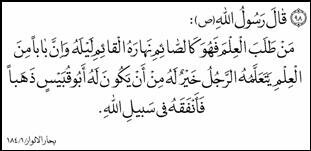 ﴿٩٨﴾ قَالَ رَسُولُ اللهِ (ص):
مَنْ طَلَبَ الْعِلْمَ فَهُوَ كَالصَّائِمِ نَهَارَهُ الْقَائِمِ لَيْلَهُ وَإِنَّ بَاباً مِنَ
الْعِلْمِ يَتَعَلَّمُهُ الرَّجُلُ خَيْرٌ لَهُ مِنْ أَنْ يَكُونَ لَهُ أَبُو قُبَيْسٍ ذَهَباً
فَأَنْفَقَهُ فِي سَبِيلِ اللهِ.
بحار الانوار ١٨٤/١